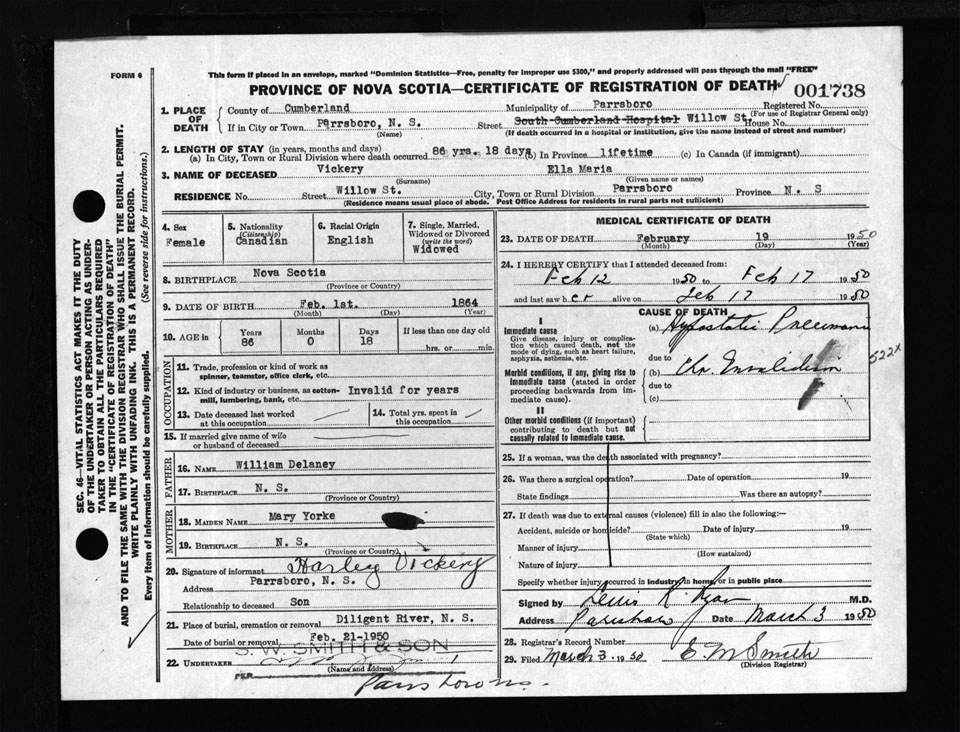 FORM 6
This form if placed in an envelope, marked "Dominion Statistics—Free, penalty for improper use $300," and properly addressed will pass through the mail "FREE"
PROVINCE OF NOVA SCOTIA—CERTIFICATE OF REGISTRATION OF DEATH
001738
1. PLACE OF DEATH
County of Cumberland Municipality of Parrsboro Registered No.
(For use of Registrar General only)
If in City or Town Parrsboro, N. S. Street South Cumberland Hospital Willow St. House No.
(Name) (If death occurred in a hospital or institution, give the name instead of street and number)
2. LENGTH OF STAY (in years, months and days)
(a) In City, Town or Rural Division where death occurred 86 yrs. 18 days (b) In Province lifetime (c) In Canada (if immigrant)
3. NAME OF DECEASED Vickery Ella Maria
(Surname) (Given name or names)
RESIDENCE No. Street Willow St. City, Town or Rural Division Parrsboro Province N. S
(Residence means usual place of abode. Post Office Address for residents in rural parts not sufficient)
4. Sex
Female
5. Nationality
(Citizenship)
Canadian
6. Racial Origin
English
7. Single, Married, Widowed or Divorced
(write the word)
Widowed
8. BIRTHPLACE Nova Scotia
(Province or Country)
9. DATE OF BIRTH Feb. 1st. 1864
(Month) (Day) (Year)
10. AGE in Years Months Days If less than one day old
86 0 18 hrs. or min.
OCCUPATION
11. Trade, profession or kind of work as spinner, teamster, office clerk, etc.
12. Kind of industry or business, as cotton-mill, lumbering, bank, etc. Invalid for years
13. Date deceased last worked at this occupation
14. Total yrs. spent in this occupation
15. If married give name of wife or husband of deceased
FATHER
16. NAME William Delaney
17. BIRTHPLACE N. S.
(Province or Country)
MOTHER
18. MAIDEN NAME Mary Yorke
19. BIRTHPLACE N. S.
(Province or Country)
20. Signature of informant Harley Vickery
Address Parrsboro, N. S.
Relationship to deceased Son
21. Place of burial, cremation or removal Diligent River, N. S.
Date of burial or removal Feb. 21-1950
S. W. SMITH & SON
22. UNDERTAKER
(Name and address)
PER
MEDICAL CERTIFICATE OF DEATH
23. DATE OF DEATH February 19 1950
(Month) (Day) (Year)
24. I HEREBY CERTIFY that I attended deceased from:
Feb 12 1950 to Feb 17 1950
and last saw her alive on Feb 17 1950
CAUSE OF DEATH
I
Immediate cause
Give disease, injury or complication which caused death, not the mode of dying, such as heart failure, asphyxia, asthenia, etc.
(a) Hypostatic Pneumonia
due to
Morbid conditions, if any, giving rise to immediate cause (stated in order proceeding backwards from immediate cause).
(b) Chr. Invalidism
522x
due to
(c)
II
Other morbid conditions (if important) contributing to death but not causally related to immediate cause.
25. If a woman, was the death associated with pregnancy?
26. Was there a surgical operation? Date of operation 19
State findings Was there an autopsy?
27. If death was due to external causes (violence) fill in also the following:—
Accident, suicide or homicide? Date of injury 19
(State which)
Manner of injury
(How sustained)
Nature of injury
Specify whether injury occurred in industry, in home, or in public place
Signed by M.D.
Address Parrsboro Date March 3 1950
28. Registrar's Record Number
29. Filed March 3 1950 E M Smith
(Division Registrar)
SEC. 46—VITAL STATISTICS ACT MAKES IT THE DUTY
OF THE UNDERTAKER OR PERSON ACTING AS UNDER-
TAKER TO OBTAIN ALL THE PARTICULARS REQUIRED
IN THE "CERTIFICATE OF REGISTRATION OF DEATH"
AND TO FILE THE SAME WITH THE DIVISION REGISTRAR WHO SHALL ISSUE THE BURIAL PERMIT.
WRITE PLAINLY WITH UNFADING INK. THIS IS A PERMANENT RECORD.
Every item of information should be carefully supplied. (See reverse side for instructions.)